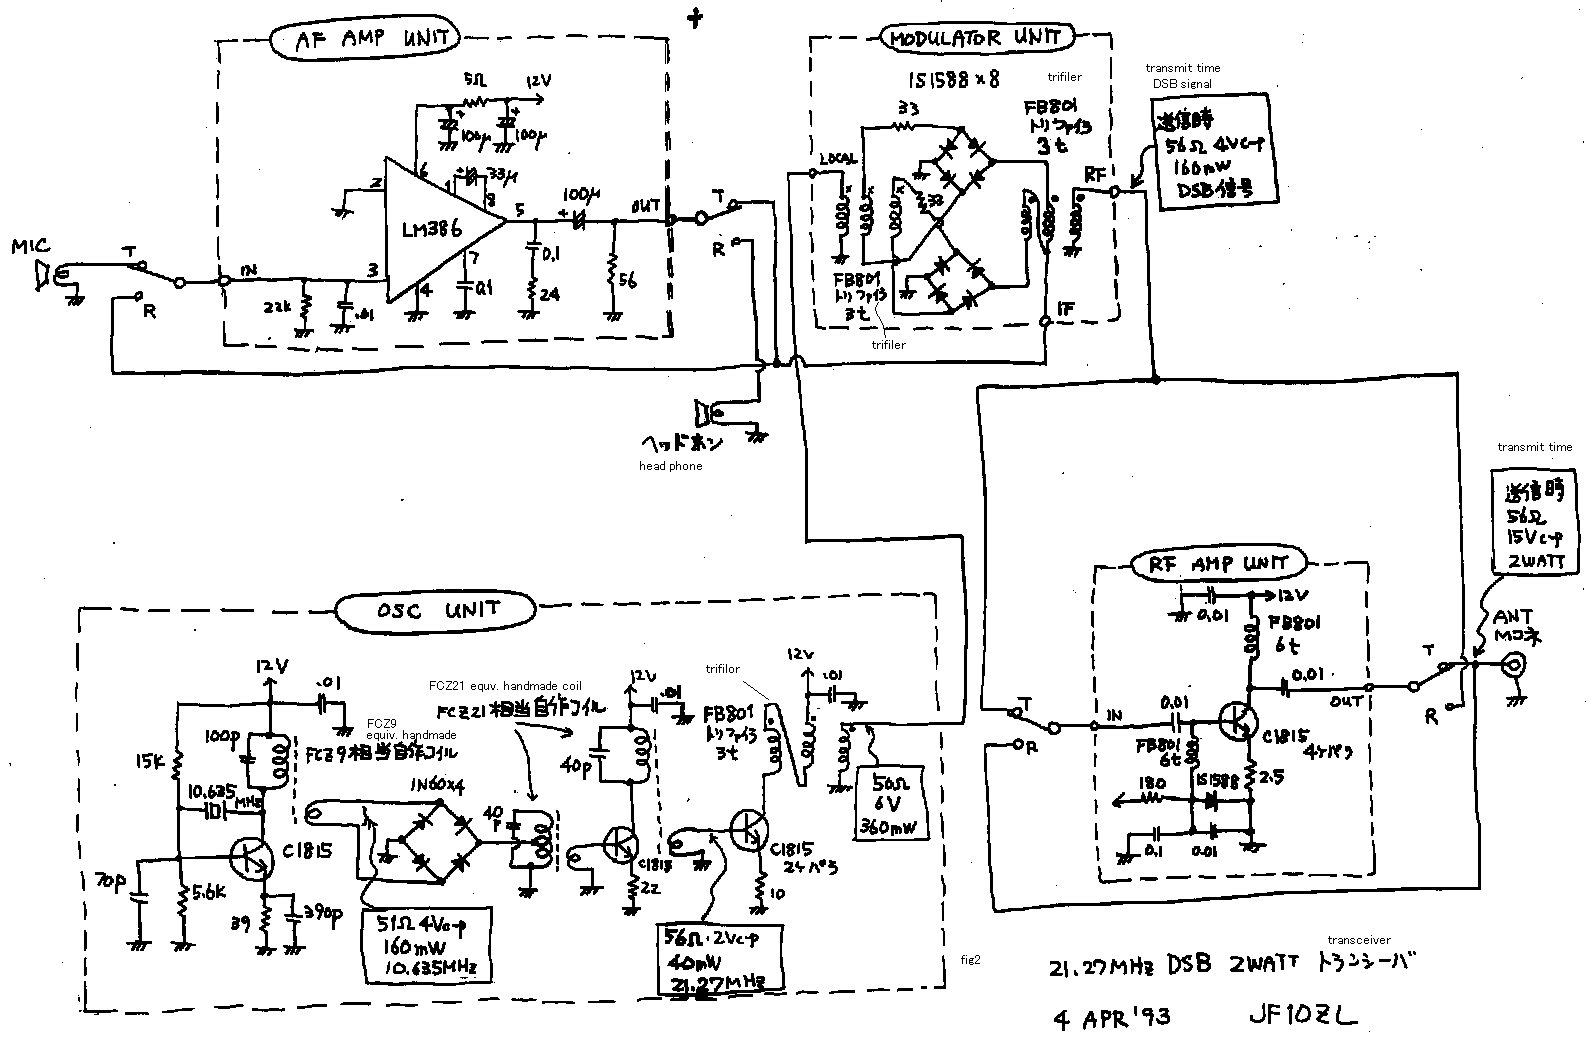 AF AMP UNIT
5Ω
12V
+
100μ
+
100μ
6
2
1
+
33μ
8
LM386
5
100μ
+
OUT
7
0.1
3
4
0.1
24
56
IN
22k
.01
MIC
T
R
T
R
ヘッドホン
head phone
MODULATOR UNIT
1S1588×8
trifiler
33
FB801
トリファイラ
3t
LOCAL
RF
33
FB801
トリファイラ
3t
trifiler
IF
transmit time
DSB signal
送信時
56Ω 4Vc-p
160mW
DSB信号
transmit time
送信時
56Ω
15Vc-p
2WATT
OSC UNIT
12V
.01
100p
FCZ9
equiv. handmade
FCZ9相当自作コイル
15K
10.635
MHz
C1815
70p
5.6k
39
390p
FCZ21 equv. handmade coil
FCZ21相当自作コイル
1N60×4
40
p
51Ω 4Vc-p
160mW
10.635MHz
12V
.01
40p
C1815
22
trifilor
FB801
トリファイラ
3t
12V
.01
C1815
2ケパラ
10
56Ω・2Vc-p
40mW
21.27MHz
50Ω
6V
360mW
RF AMP UNIT
0.01
12V
FB801
6t
0.01
OUT
T
R
ANT
Mコネ
T
R
IN
0.01
FB801
6t
C1815
4ケパラ
180
1S1588
2.5
0.1
0.01
fig2
transceiver
21.27MHz DSB 2WATT トランシーバ
4 APR '93 JF1OZL